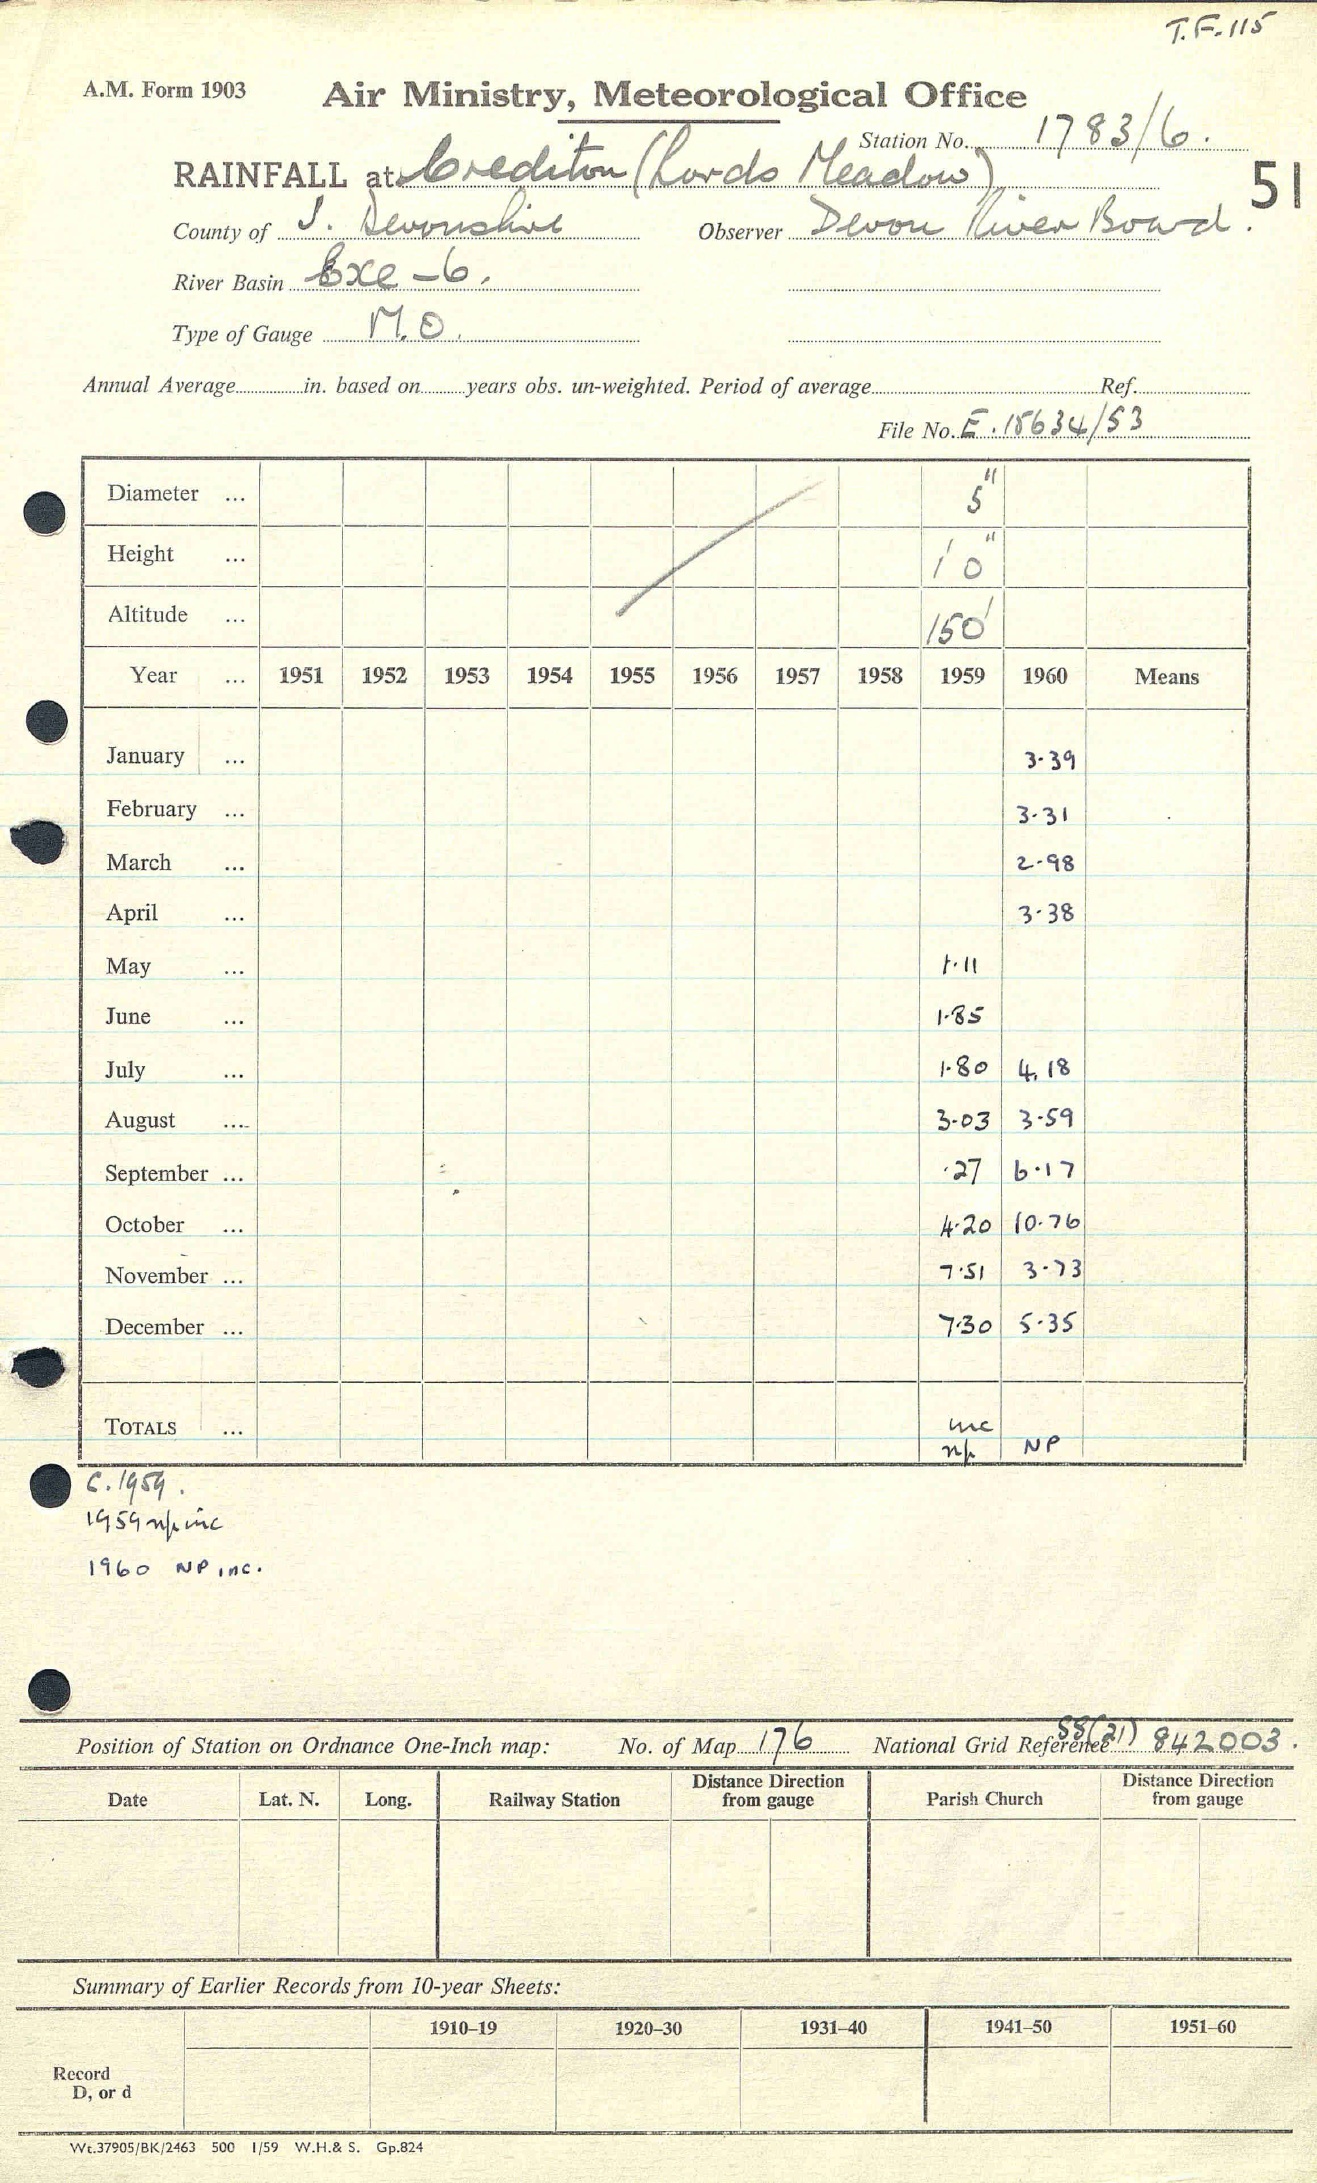 T.F. 115
A.M. Form 1903 Air Ministry, Meteorological Office
Station No. 1783/6.
RAINFALL at Crediton (Lords Meadow) 51
County of S. Devonshire Observer Devon River Board.
River Basin Exe - 6.
Type of Gauge M.O.
Annual Average in. based on years obs. un-weighted. Period of average Ref.
File No. E. 15634/53
Diameter ... 5"
Height ... 1' 0"
Altitude ... 150'
Year ... 1951 1952 1953 1954 1955 1956 1957 1958 1959 1960 Means
January ... 3.39
February ... 3.31
March ... 2.98
April ... 3.38
May ... 1.11
June ... 1.85
July ... 1.80 4.18
August ... 3.03 3.59
September ... .27 6.17
October ... 4.20 10.76
November ... 7.51 3.73
December ... 7.30 5.35
TOTALS ... inc
np NP
C. 1959.
1959 np inc
1960 NP inc.
Position of Station on Ordnance One-Inch map: No. of Map 176 National Grid Reference SS(21) 842003.
Date Lat. N. Long. Railway Station Distance Direction from gauge Parish Church Distance Direction from gauge
Summary of Earlier Records from 10-year Sheets:
1910–19 1920–30 1931–40 1941–50 1951–60
Record
D, or d
Wt.37905/BK/2463 500 1/59 W.H.& S. Gp.824